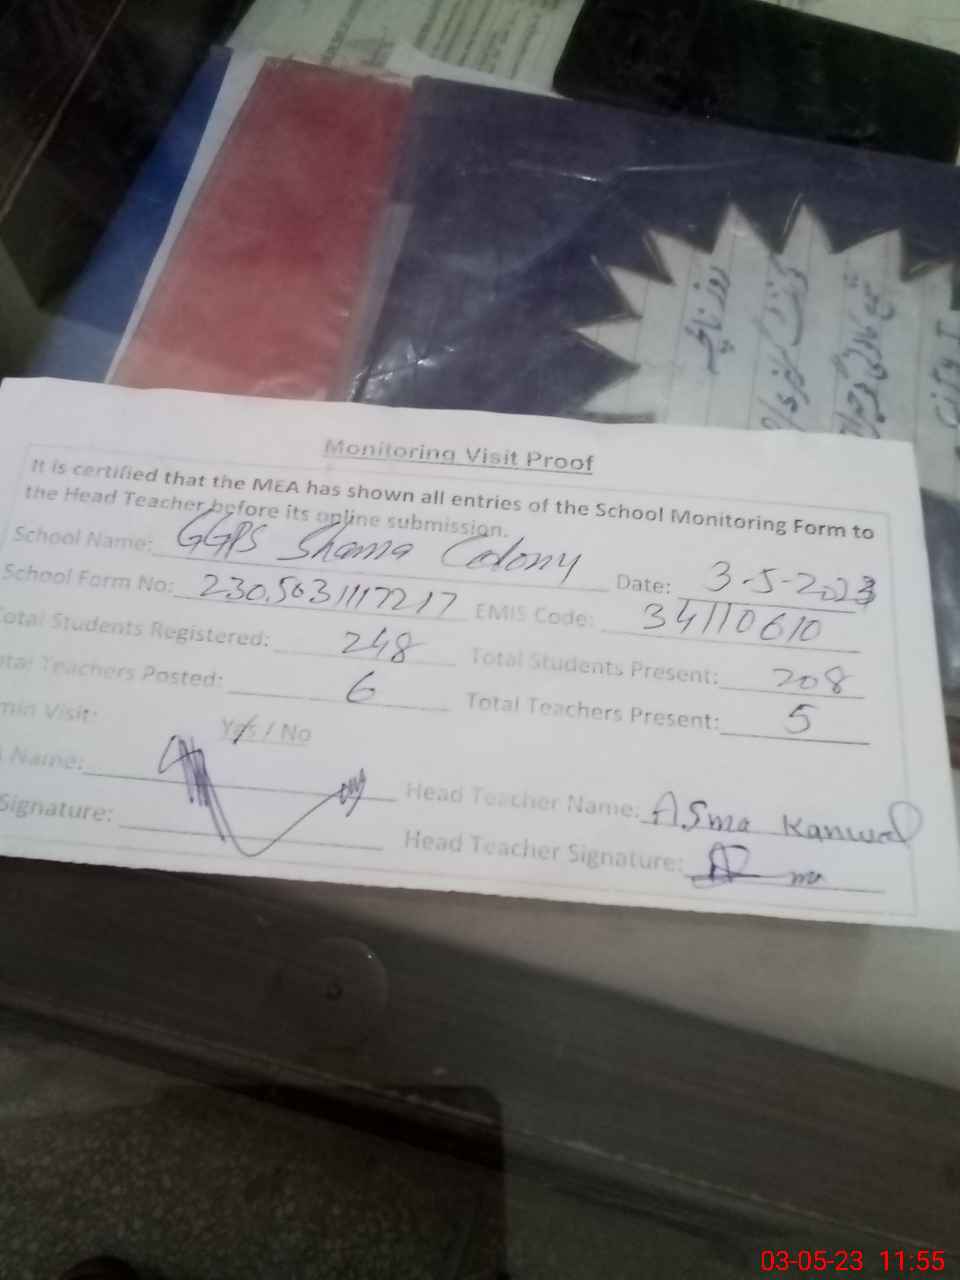 روزنامچہ
Monitoring Visit Proof
It is certified that the MEA has shown all entries of the School Monitoring Form to
the Head Teacher before its online submission.
School Name: GGPS Shama Colony Date: 3-5-2023
School Form No: EMIS Code: 34110610
otal Students Registered: 248 Total Students Present: 208
tal Teachers Posted: 6 Total Teachers Present: 5
min Visit: Yes / No
Name: Head Teacher Name: Asma Kanwal
Signature: Head Teacher Signature:
03-05-23 11:55